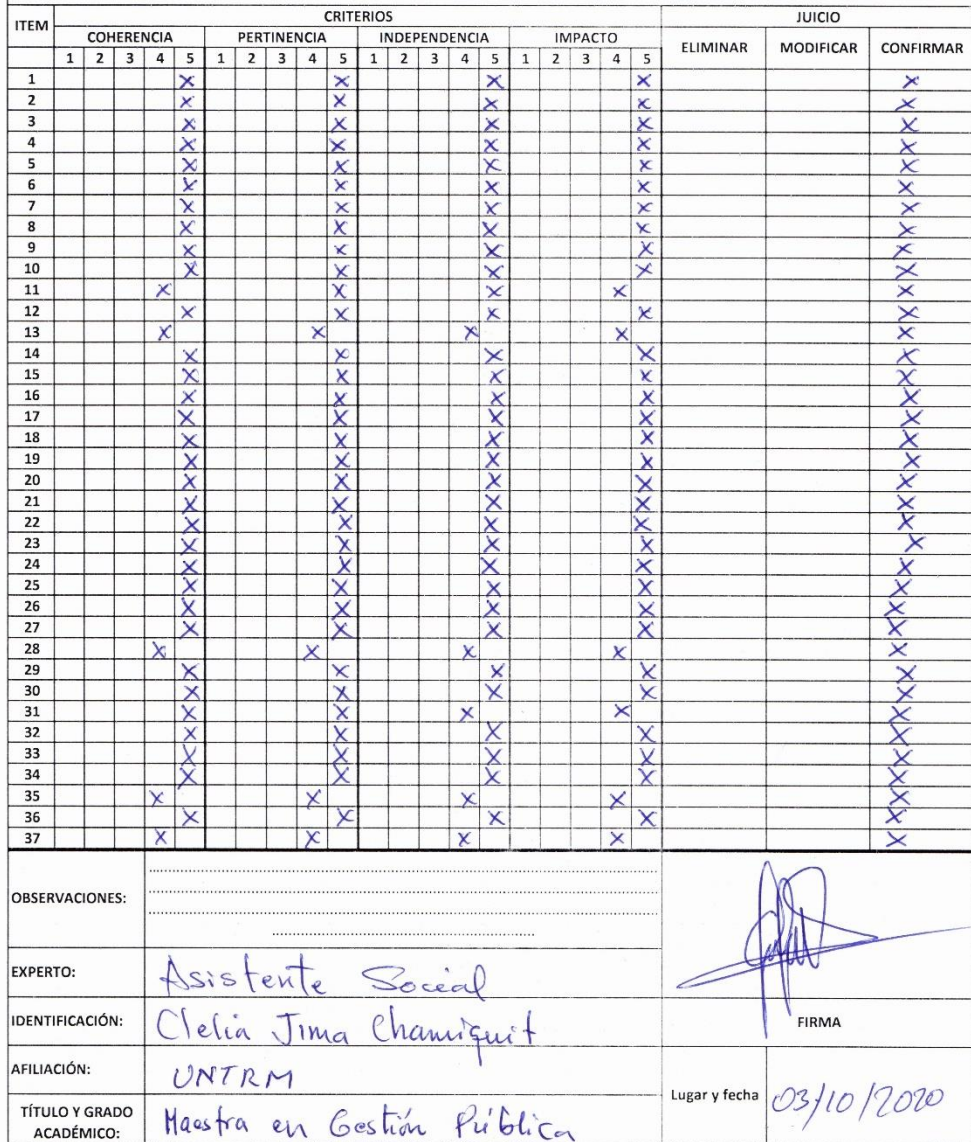 ITEM CRITERIOS JUICIO
COHERENCIA PERTINENCIA INDEPENDENCIA IMPACTO ELIMINAR MODIFICAR CONFIRMAR
1 2 3 4 5 1 2 3 4 5 1 2 3 4 5 1 2 3 4 5
1 X X X X X
2 X X X X X
3 X X X X X
4 X X X X X
5 X X X X X
6 X X X X X
7 X X X X X
8 X X X X X
9 X X X X X
10 X X X X X
11 X X X X X
12 X X X X X
13 X X X X X
14 X X X X X
15 X X X X X
16 X X X X X
17 X X X X X
18 X X X X X
19 X X X X X
20 X X X X X
21 X X X X X
22 X X X X X
23 X X X X X
24 X X X X X
25 X X X X X
26 X X X X X
27 X X X X X
28 X X X X X
29 X X X X X
30 X X X X X
31 X X X X X
32 X X X X X
33 X X X X X
34 X X X X X
35 X X X X X
36 X X X X X
37 X X X X X
OBSERVACIONES:
EXPERTO: Asistente Social
IDENTIFICACIÓN: Clelia Jima Chamiquit
FIRMA
AFILIACIÓN: UNTRM
Lugar y fecha 03/10/2020
TÍTULO Y GRADO ACADÉMICO: Maestra en Gestión Pública